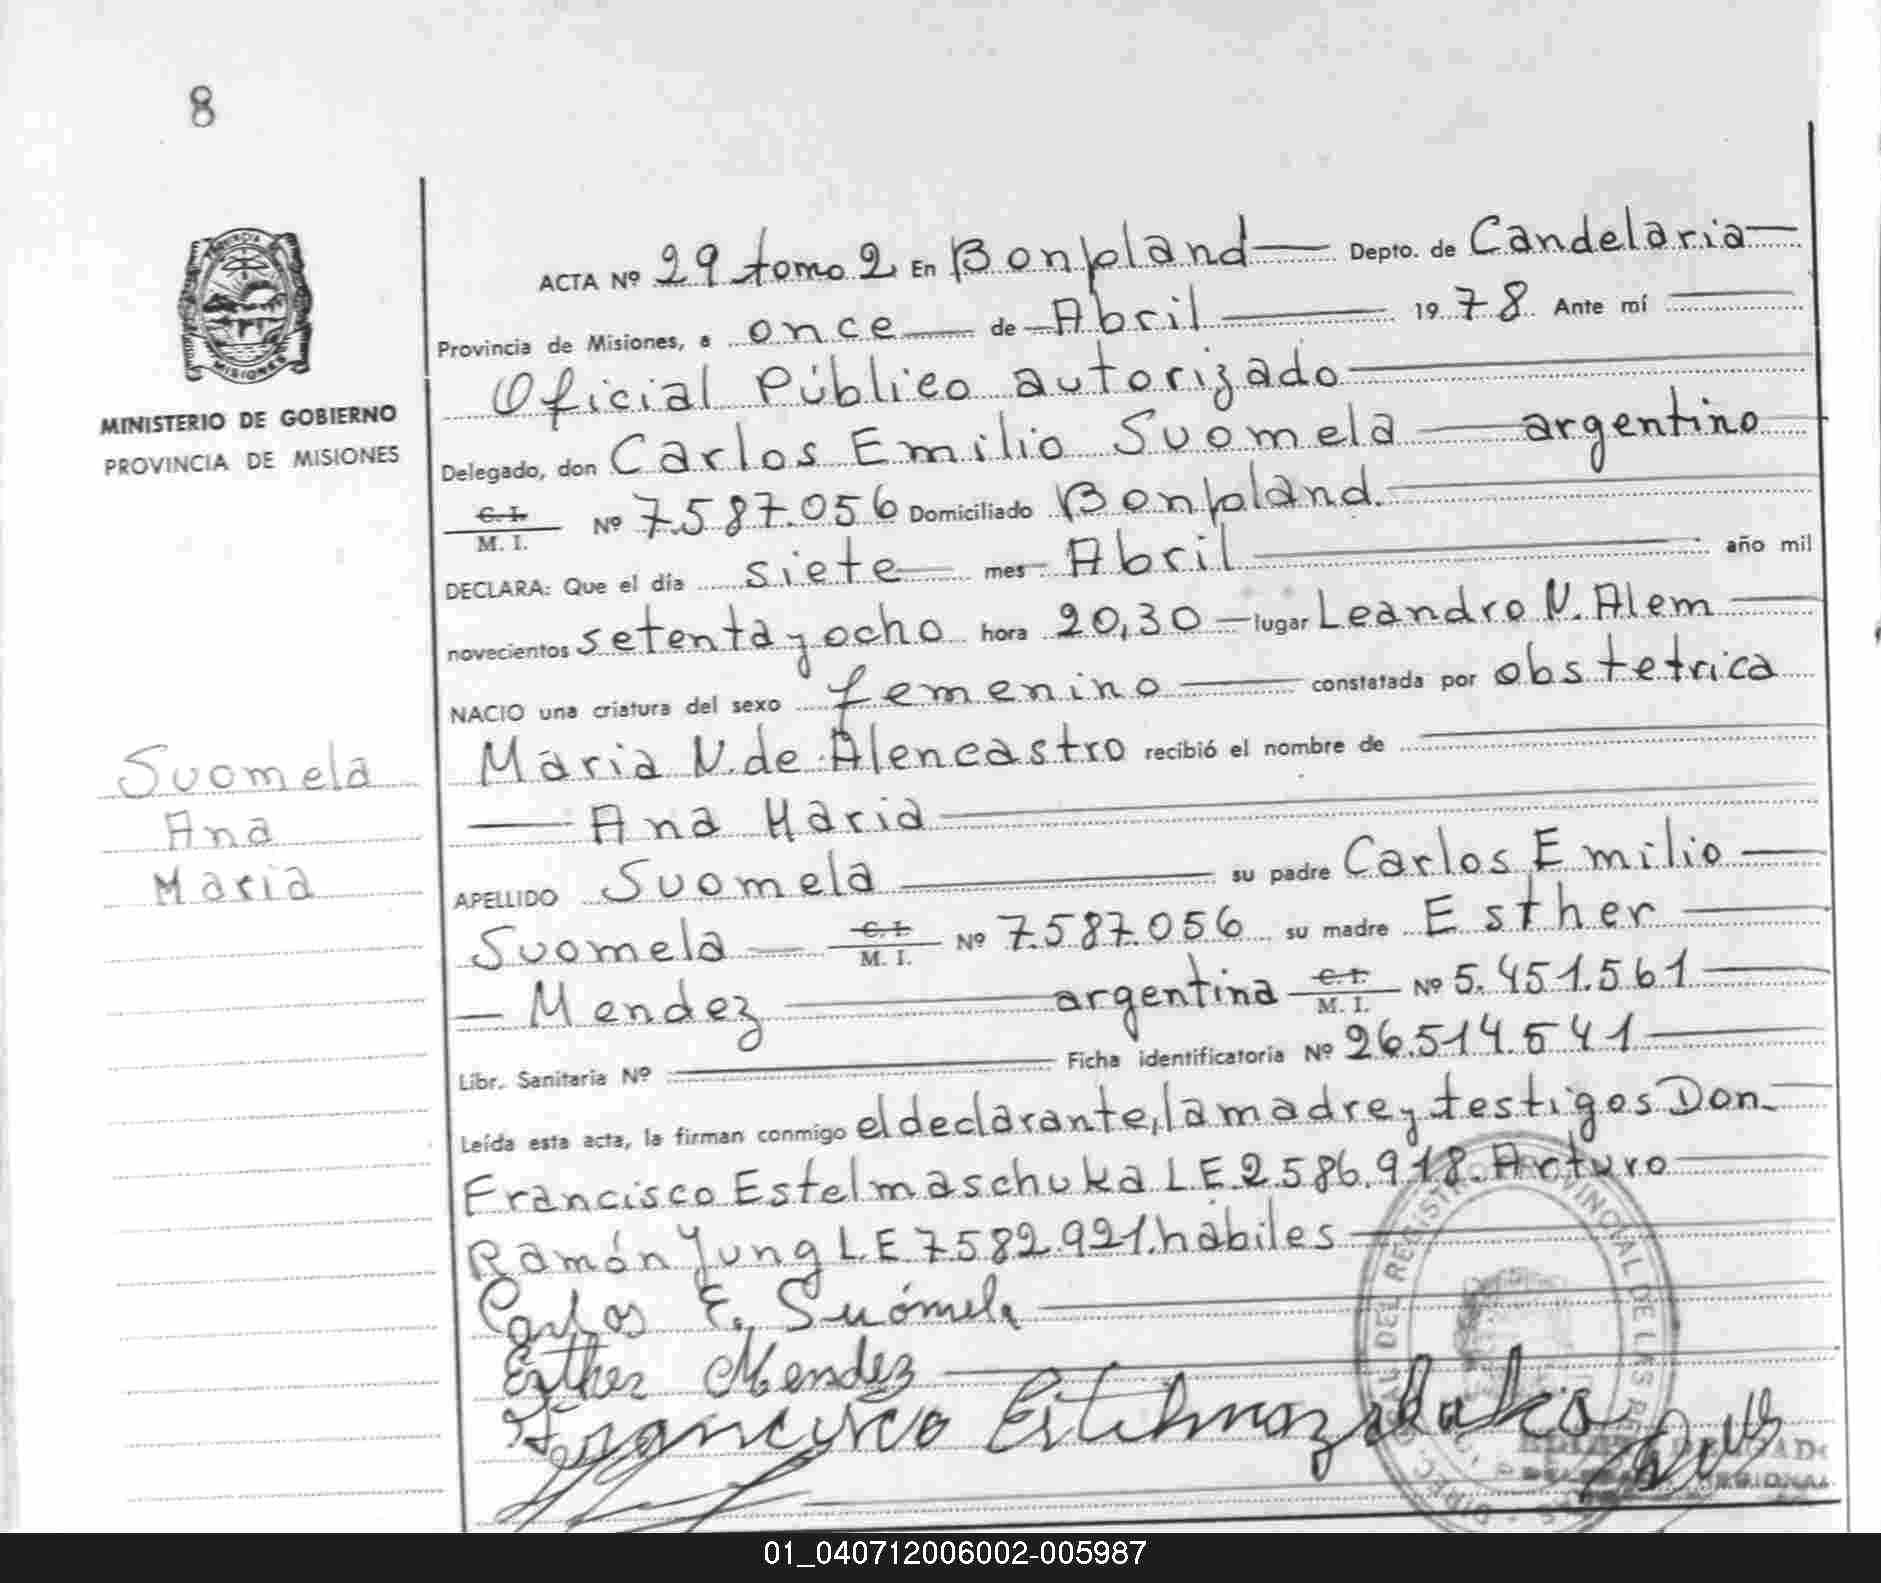 8
PROVINCIA
MISIONES
MINISTERIO DE GOBIERNO
PROVINCIA DE MISIONES
ACTA Nº 29 tomo 2 En Bonpland Depto. de Candelaria
Provincia de Misiones, a once de Abril 1978 Ante mí
Oficial Público autorizado
Delegado, don Carlos Emilio Suomela argentino
C. I.
M. I. Nº 7.587.056 Domiciliado Bonpland.
DECLARA: Que el día siete mes Abril año mil
novecientos setenta y ocho hora 20,30 lugar Leandro N. Alem
NACIO una criatura del sexo femenino constatada por obstetrica
Maria N. de Alencastro recibió el nombre de
Ana Maria
APELLIDO Suomela su padre Carlos Emilio
Suomela C. I.
M. I. Nº 7.587.056 su madre Esther
Mendez argentina C. I.
M. I. Nº 5.451.561
Libr. Sanitaria Nº Ficha identificatoria Nº 26.514.541
Leída esta acta, la firman conmigo el declarante, la madre y testigos Don
Francisco Estelmaschuka L E 2.586.918. Arturo
Ramón Yung L.E 7.582.921. hábiles
Carlos E. Suómela
Esther Mendez
Francisco
Suomela
Ana
Maria
01_040712006002-005987